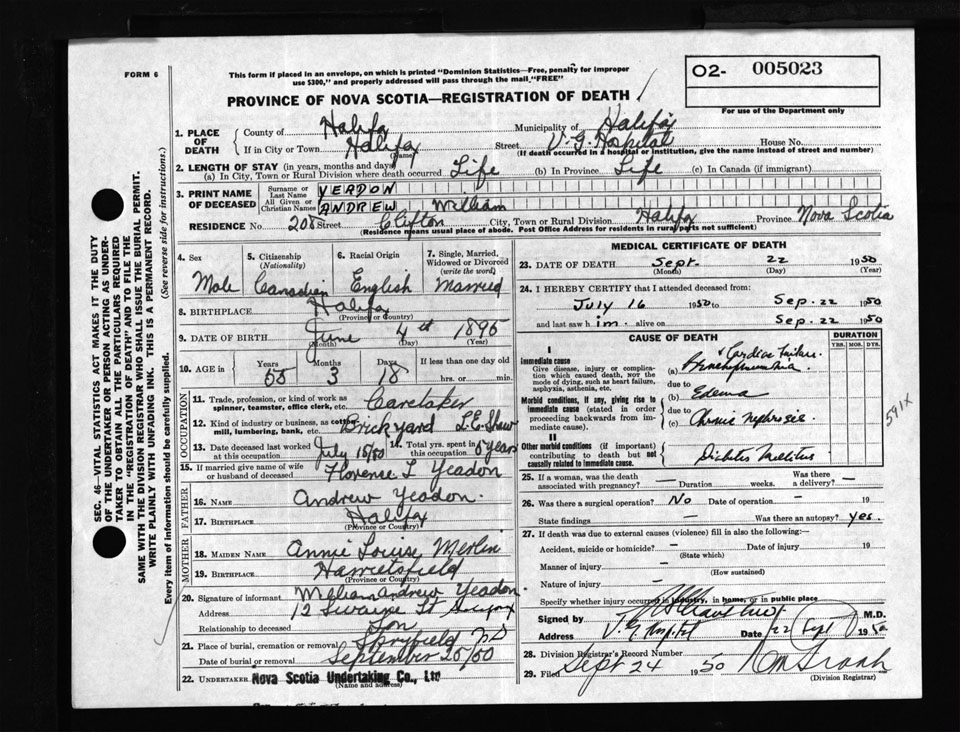 FORM 6
This form if placed in an envelope, on which is printed "Dominion Statistics—Free, penalty for improper
use $300," and properly addressed will pass through the mail "FREE"
O2- 005023
For use of the Department only
PROVINCE OF NOVA SCOTIA—REGISTRATION OF DEATH
1. PLACE OF DEATH
County of Halifax Municipality of Halifax
If in City or Town Halifax Street V. G. Hospital House No.
(Name) (If death occurred in a hospital or institution, give the name instead of street and number)
2. LENGTH OF STAY (in years, months and days)
(a) In City, Town or Rural Division where death occurred Life (b) In Province Life (c) In Canada (if immigrant)
3. PRINT NAME OF DECEASED
Surname or Last Name YEADON
All Given or Christian Names ANDREW William
RESIDENCE No. 208 Street Clifton City, Town or Rural Division Halifax Province Nova Scotia
(Residence means usual place of abode. Post Office Address for residents in rural parts not sufficient)
4. Sex Male
5. Citizenship (Nationality) Canadian
6. Racial Origin English
7. Single, Married, Widowed or Divorced (write the word) Married
8. BIRTHPLACE Halifax
(Province or Country)
9. DATE OF BIRTH June 4th 1895
(Month) (Day) (Year)
10. AGE Years 55 Months 3 Days 18 If less than one day old hrs. or min.
OCCUPATION
11. Trade, profession, or kind of work as spinner, teamster, office clerk, etc. Caretaker
12. Kind of industry or business, as cotton mill, lumbering, bank, etc. Brickyard L.E. Shaw
13. Date deceased last worked at this occupation July 15/50 14. Total yrs. spent in this occupation 5 years
15. If married give name of wife or husband of deceased Florense L Yeadon
FATHER
16. NAME Andrew Yeadon.
17. BIRTHPLACE Halifax
(Province or Country)
MOTHER
18. MAIDEN NAME Annie Louise Merlin
19. BIRTHPLACE Harrietsfield
(Province or Country)
20. Signature of informant William Andrew Yeadon
Address 12 Swaine St
Relationship to deceased Son
21. Place of burial, cremation or removal Spryfield NS
Date of burial or removal September 25/50
22. UNDERTAKER Nova Scotia Undertaking Co., Ltd
(Name and address)
MEDICAL CERTIFICATE OF DEATH
23. DATE OF DEATH Sept. 22 1950
(Month) (Day) (Year)
24. I HEREBY CERTIFY that I attended deceased from:
July 16 1950 to Sep. 22 1950
and last saw him. alive on Sep. 22 1950
CAUSE OF DEATH
DURATION
YRS. MOS. DYS.
I
Immediate cause
Give disease, injury or complication which caused death, not the mode of dying, such as heart failure, asphyxia, asthenia, etc.
(a) + Cardiac Failure
Bronchopneumonia
due to
Morbid conditions, if any, giving rise to immediate cause (stated in order proceeding backwards from immediate cause).
(b) Edema
due to
(c) Chronic nephrosis
591X
II
Other morbid conditions (if important) contributing to death but not causally related to immediate cause.
Diabetes Mellitus
25. If a woman, was the death associated with pregnancy? — Duration weeks. Was there a delivery? —
26. Was there a surgical operation? No Date of operation — 19
State findings — Was there an autopsy? yes.
27. If death was due to external causes (violence) fill in also the following:—
Accident, suicide or homicide? — Date of injury 19
(State which)
Manner of injury —
(How sustained)
Nature of injury —
Specify whether injury occurred in industry, in home, or in public place
Signed by M.D.
Address V. G. Hospital Date 22 Sept 1950
28. Division Registrar's Record Number
29. Filed Sept 24 1950
(Division Registrar)
SEC. 46—VITAL STATISTICS ACT MAKES IT THE DUTY
OF THE UNDERTAKER OR PERSON ACTING AS UNDER-
TAKER TO OBTAIN ALL THE PARTICULARS REQUIRED
IN THE "REGISTRATION OF DEATH" AND TO FILE THE
SAME WITH THE DIVISION REGISTRAR WHO SHALL ISSUE THE BURIAL PERMIT.
WRITE PLAINLY WITH UNFADING INK. THIS IS A PERMANENT RECORD.
Every item of information should be carefully supplied. (See reverse side for instructions.)